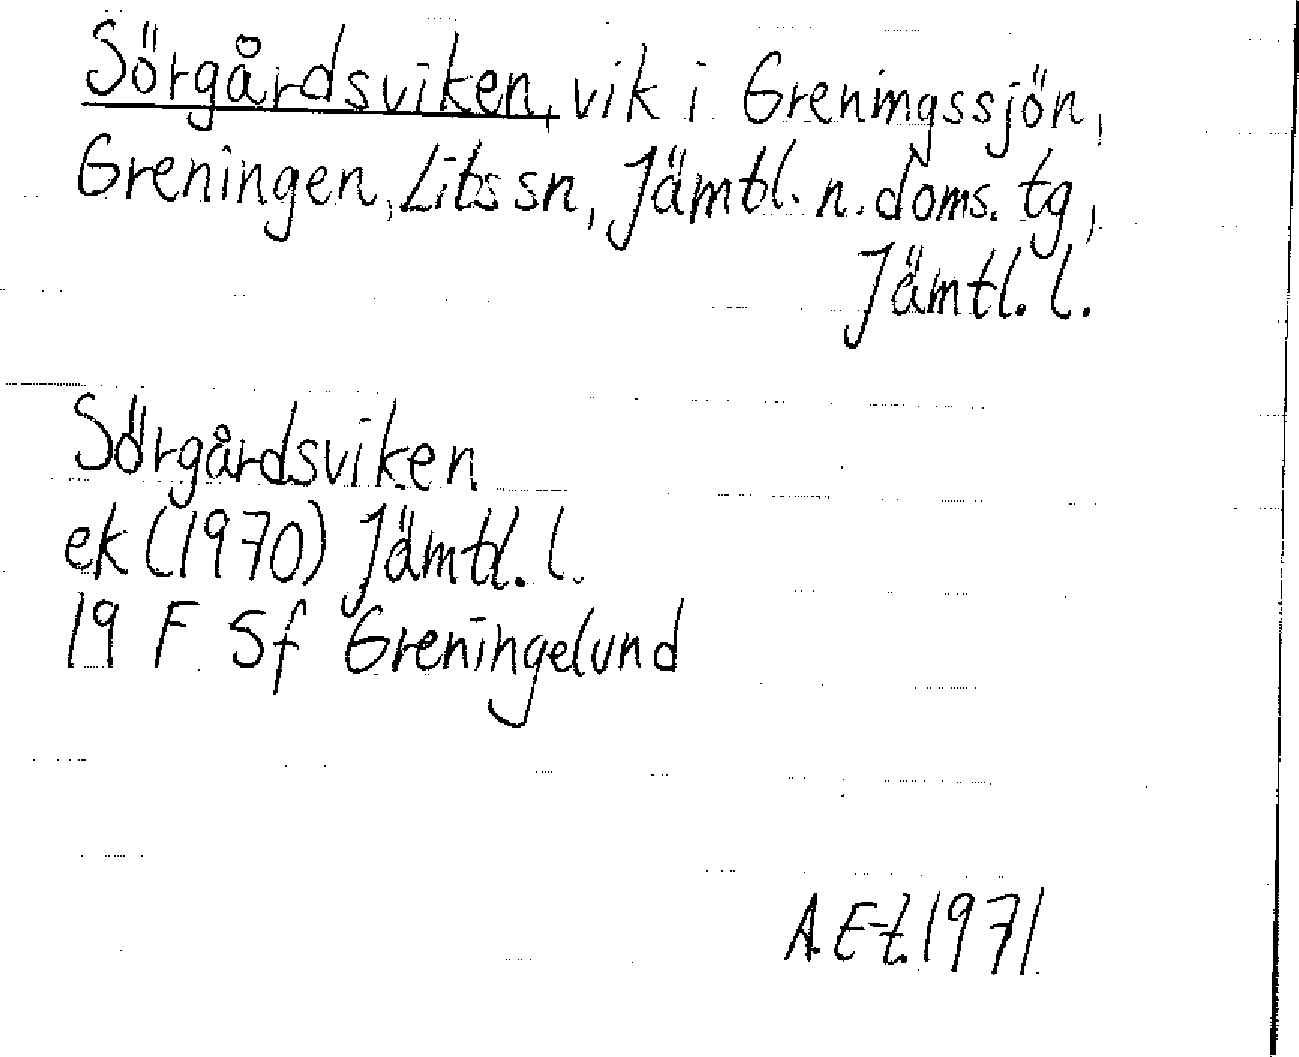 Sörgårdsviken, vik i Greningssjön,
Greningen, Lits sn, Jämtl. n. doms. tg,
Jämtl. l.
Sörgårdsviken
ek (1970) Jämtl. l.
19 F 5f Greningelund
A. E-t. 1971